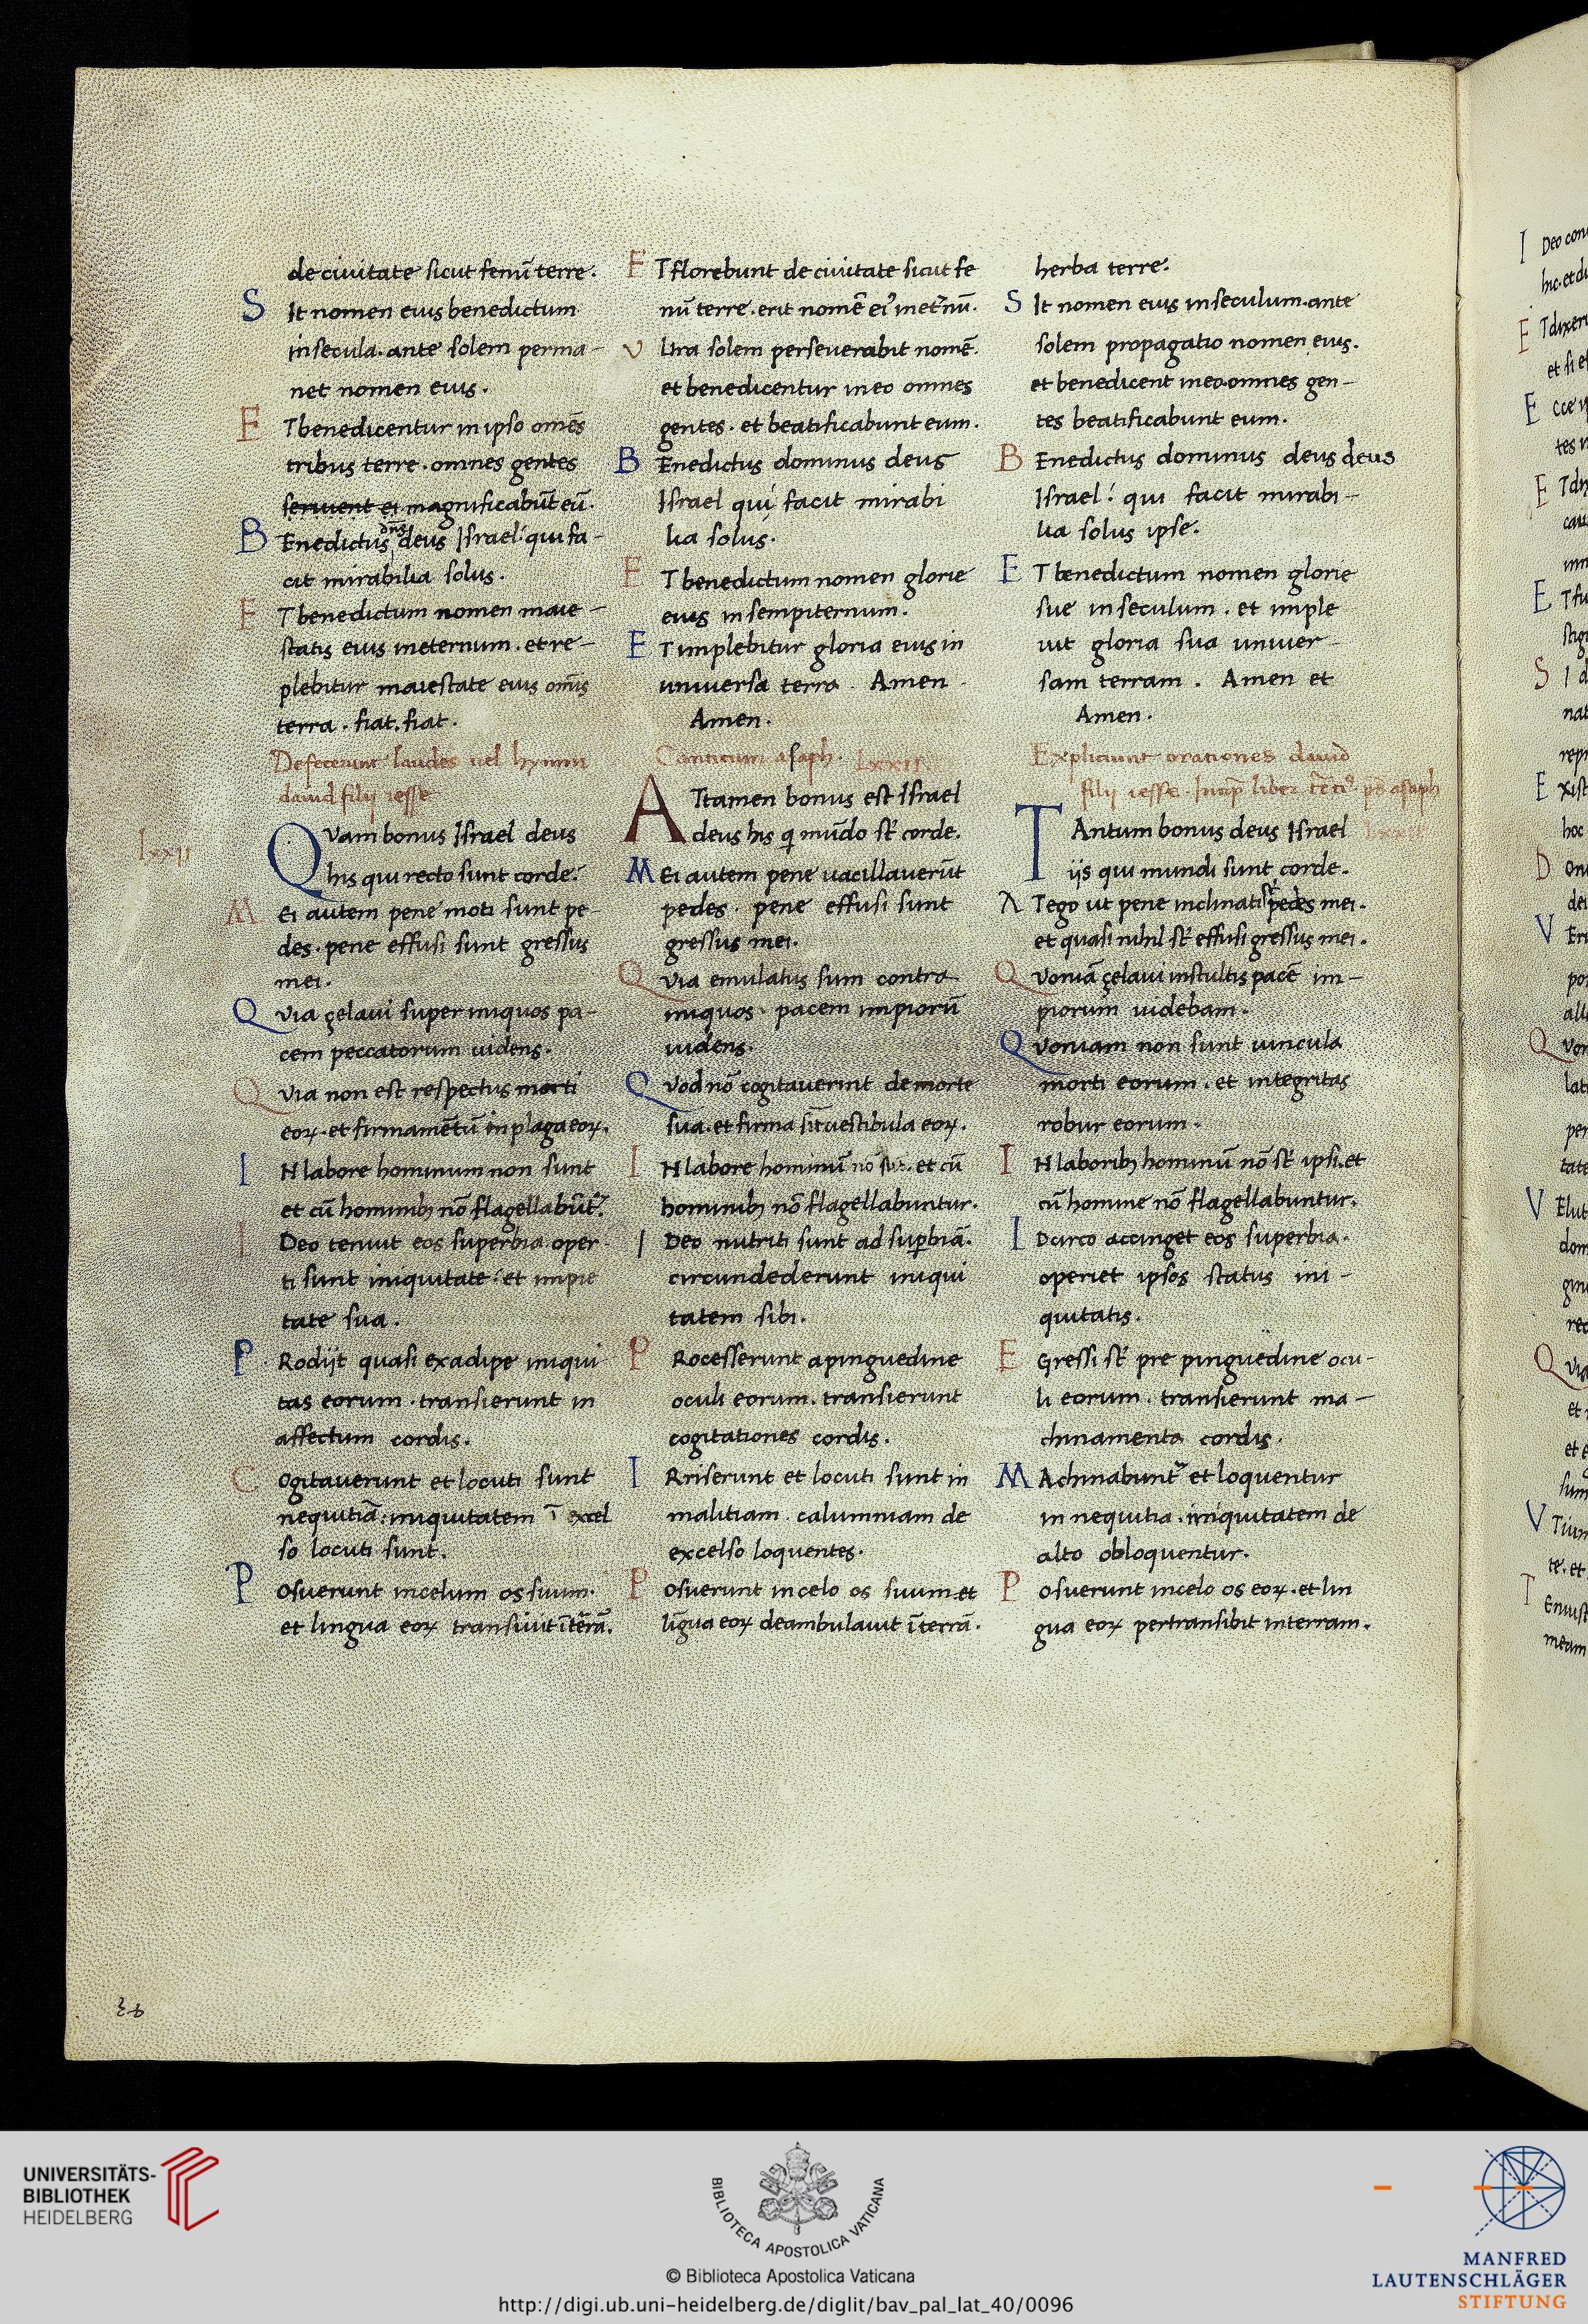 de ciuitate sicut fenū terre.
S It nomen eius benedictum
in secula. ante solem perma-
net nomen eius.
E T benedicentur in ipso omēs
tribus terre. omnes gentes
seruient ei magnificabūt eū.
B Enedictus dn̄s deus Israel: qui fa-
cit mirabilia solus.
E T benedictum nomen maie-
statis eius ineternum. et re-
plebitur maiestate eius om̄is
terra. fiat. fiat.
Defecerunt laudes uel hymni
dauid filij iesse
lxxII
Q Vam bonus Israel deus
his qui recto sunt corde:
M Ei autem pene moti sunt pe-
des. pene effusi sunt gressus
mei.
Q via çelaui super iniquos pa-
cem peccatorum uidens.
Q via non est respectus morti
eoꝝ. et firmamētū in plaga eoꝝ.
I N labore hominum non sunt
et cū hominibꝫ nō flagellabūt᷑.
I Deo tenuit eos superbia oper
ti sunt iniquitate: et impie
tate sua.
P Rodijt quasi ex adipe iniqui
tas eorum. transierunt in
affectum cordis.
C ogitauerunt et locuti sunt
nequitiā: iniquitatem ī excel
so locuti sunt.
P osuerunt incelum os suum.
et lingua eoꝝ transiuit ī terrā.
E T florebunt de ciuitate sicut fe
nū terre. erit nomē eiꝰ inet̄nū.
V Ltra solem perseuerabit nomē.
et benedicentur in eo omnes
gentes. et beatificabunt eum.
B Enedictus dominus deus
Israel qui facit mirabi
lia solus.
E T benedictum nomen glorie
eius in sempiternum.
E T implebitur gloria eius in
uniuersa terra. Amen
Amen.
Canticum asaph. LxxII.
A Ttamen bonus est Israel
deus his q̄ mūdo sūt corde.
M Ei autem pene uacillauerūt
pedes. pene effusi sunt
gressus mei.
Q via emulatus sum contra
iniquos. pacem impiorū
uidens.
Q vod nō cogitauerint de morte
sua. et firma sīt uestibula eoꝝ.
I N labore hominū nō sūt. et cū
hominibꝫ nō flagellabuntur.
I Deo nutriti sunt ad suꝑbiā.
circundederunt iniqui
tatem sibi.
P Rocesserunt a pinguedine
oculi eorum. transierunt
cogitationes cordis.
I Rriserunt et locuti sunt in
malitiam. calumniam de
excelso loquentes.
P osuerunt in celo os suum. et
līgua eoꝝ deambulauit ī terrā.
herba terre.
S It nomen eius in seculum. ante
solem propagatio nomen eius.
et benedicent in eo omnes gen-
tes beatificabunt eum.
B Enedictus dominus deus deus
Israel: qui facit mirabi-
lia solus ipse.
E T benedictum nomen glorie
sue in seculum. et imple
uit gloria sua uniuer
sam terram. Amen et
Amen.
Expliciunt orationes dauid
filij iesse. Incip̄ liber t̄tiꝰ. ps̄ asaph
LxxII
T Antum bonus deus Israel
ijs qui mundi sunt corde.
A T ego ut pene inclinati sūt pedes mei.
et quasi nihil sūt effusi gressus mei.
Q voniā çelaui in stultis pacē im-
piorum uidebam.
Q voniam non sunt uincula
morti eorum. et integritas
robur eorum.
I N laboribꝫ hominū nō sūt ipsi. et
cū homine nō flagellabuntur.
I Dcirco accinget eos superbia.
operiet ipsos status ini-
quitatis.
E Gressi sūt pre pinguedine ocu-
li eorum. transierunt ma-
chinamenta cordis.
M Achinabunt᷑ et loquentur
in nequitia. iniquitatem de
alto obloquentur.
P osuerunt in celo os eoꝝ. et lin
gua eoꝝ pertransibit in terram.
UNIVERSITÄTS-
BIBLIOTHEK
HEIDELBERG
BIBLIOTECA APOSTOLICA VATICANA
© Biblioteca Apostolica Vaticana
http://digi.ub.uni-heidelberg.de/diglit/bav_pal_lat_40/0096
MANFRED
LAUTENSCHLÄGER
STIFTUNG